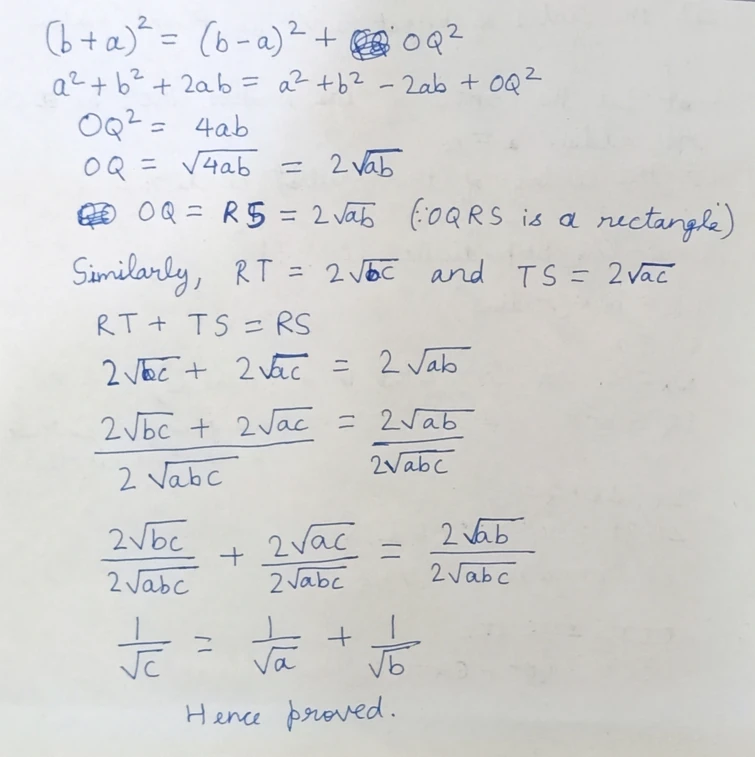 (b+a)² = (b-a)² + OQ²
a² + b² + 2ab = a² + b² - 2ab + OQ²
OQ² = 4ab
OQ = √4ab = 2√ab
OQ = RS = 2√ab (∵OQRS is a rectangle)
Similarly, RT = 2√bc and TS = 2√ac
RT + TS = RS
2√bc + 2√ac = 2√ab
(2√bc + 2√ac)/(2√abc) = 2√ab/2√abc
2√bc/2√abc + 2√ac/2√abc = 2√ab/2√abc
1/√c = 1/√a + 1/√b
Hence proved.